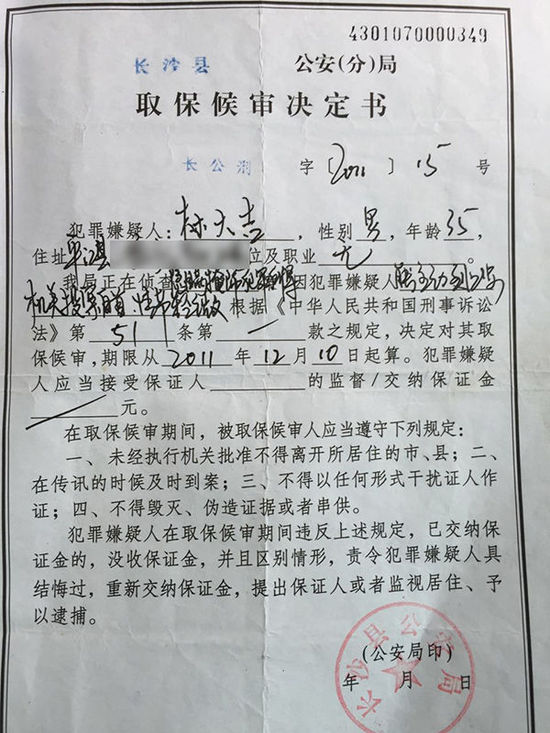 4301070000349
长沙县 公安(分)局
取保候审决定书
长公刑 字〔2011〕15号
犯罪嫌疑人:林大吉,性别男,年龄35,
住址 位及职业无。
我局正在侦查 因犯罪嫌疑人
机关投案自首,情节 根据《中华人民共和国刑事诉讼
法》第51条第一款之规定,决定对其取
保候审,期限从2011年12月10日起算。犯罪嫌疑
人应当接受保证人 的监督/交纳保证金
元。
在取保候审期间,被取保候审人应当遵守下列规定:
一、未经执行机关批准不得离开所居住的市、县;二、
在传讯的时候及时到案;三、不得以任何形式干扰证人作
证;四、不得毁灭、伪造证据或者串供。
犯罪嫌疑人在取保候审期间违反上述规定,已交纳保
证金的,没收保证金,并且区别情形,责令犯罪嫌疑人具
结悔过,重新交纳保证金,提出保证人或者监视居住、予
以逮捕。
长沙县公安局
(公安局印)
年 月 日